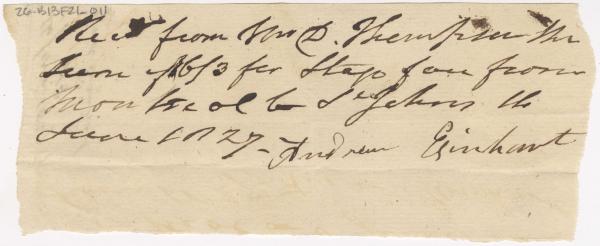 26-B13F21-011
Recd from Mr D. Thompson the
sum of 6/3 for Stage fare from
Montreal to St Johns th
June 1827- Andrew Eginhart